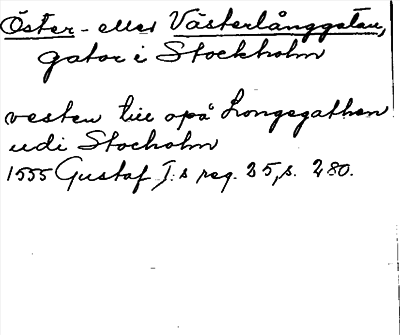 Öster- eller Västerlånggatan,
gator i Stockholm
vesten till opå Longegathen
udi Stocholm
1555 Gustaf I:s reg. 25, s. 280.